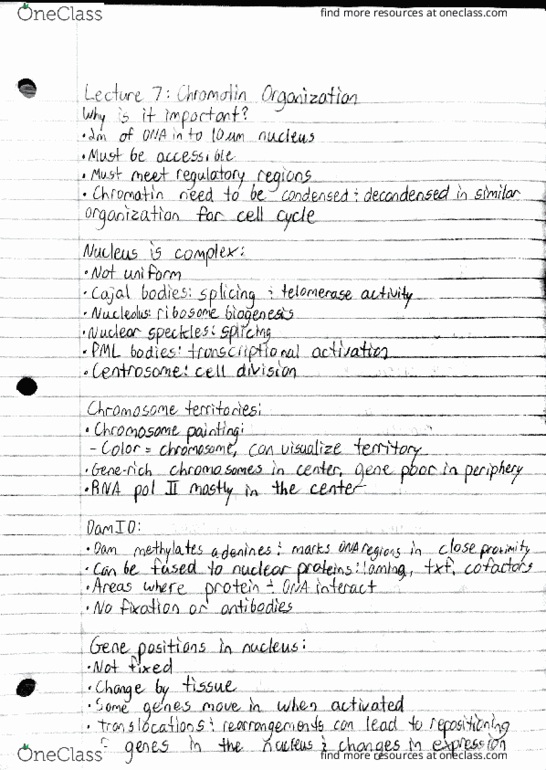 OneClass
find more resources at oneclass.com
Lecture 7: Chromatin Organization
Why is it important?
• 2m of DNA in to 10um nucleus
• Must be accessible
• Must meet regulatory regions
• Chromatin need to be condensed & decondensed in similar
organization for cell cycle
Nucleus is complex:
• Not uniform
• Cajal bodies: splicing & telomerase activity
• Nucleolus: ribosome biogenesis
• Nuclear speckles: splicing
• PML bodies: transcriptional activation
• Centrosome: cell division
Chromosome territories:
• Chromosome painting:
- Color = chromosome, can visualize territory
• Gene-rich chromosomes in center, gene poor in periphery
• RNA pol II mostly in the center
DamID:
• Dam methylates adenines & marks DNA regions in close proximity
• Can be fused to nuclear proteins: laming, txf, cofactors
• Areas where protein & DNA interact
• No fixation or antibodies
Gene positions in nucleus:
• Not fixed
• Change by tissue
• Some genes move in when activated
• translocations & rearrangements can lead to repositioning
genes in the nucleus & changes in expression
OneClass
find more resources at oneclass.com